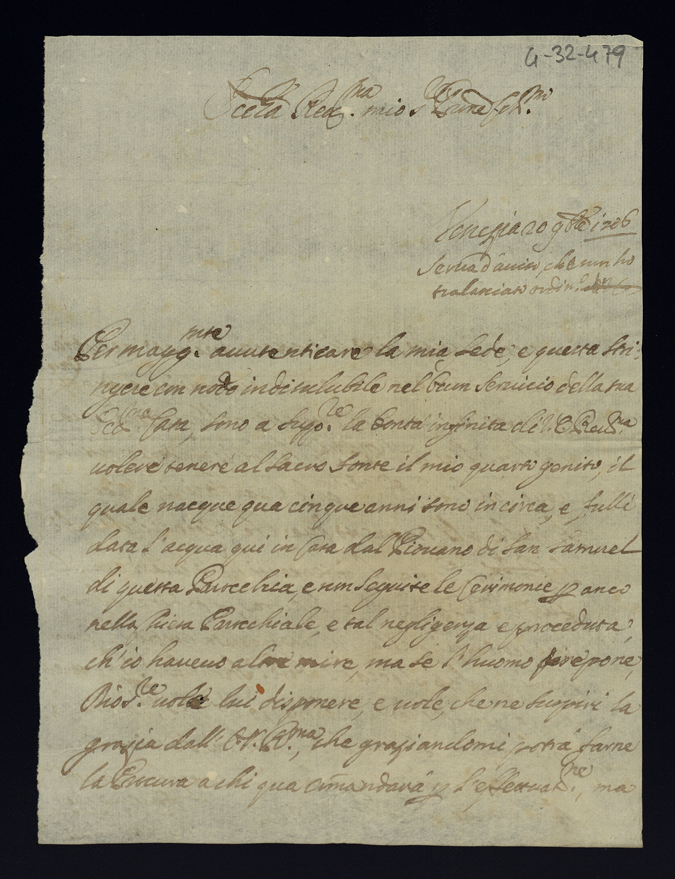 4-32-479
Ecc.za Rev.ma mio Sig.r
Venezia 20 9bre 1706
Serva d'aviso, che non ho
tralasciato ordin.
Per magg.mte auutenticare la mia fede, e questa stri-
ngere con nodo indissolubile nel buon Servicio della sua
Ecc.ma Casa, sono a supp.re la bontà infinita di V. E. Rev.ma
volere tenere al Sacro fonte il mio quarto genito, il
quale nacque qua cinque anni sono in circa, e fulli
data l'acqua qui in Casa dal Piovano di San Samuel
di questa Parochia, e non seguite le Cerimonie p anco
nella Chiesa Parochiale, e tal negligenza è proceduta,
ch'io havevo altre mire, ma se l'huomo propone,
Dio vole lui disponere, e vole, che ne supplichi la
grazia dall' E. V. R.ma, che graziandomi, potrà farne
la Procura a chi qua comandarà p l'effettuat.ne, ma